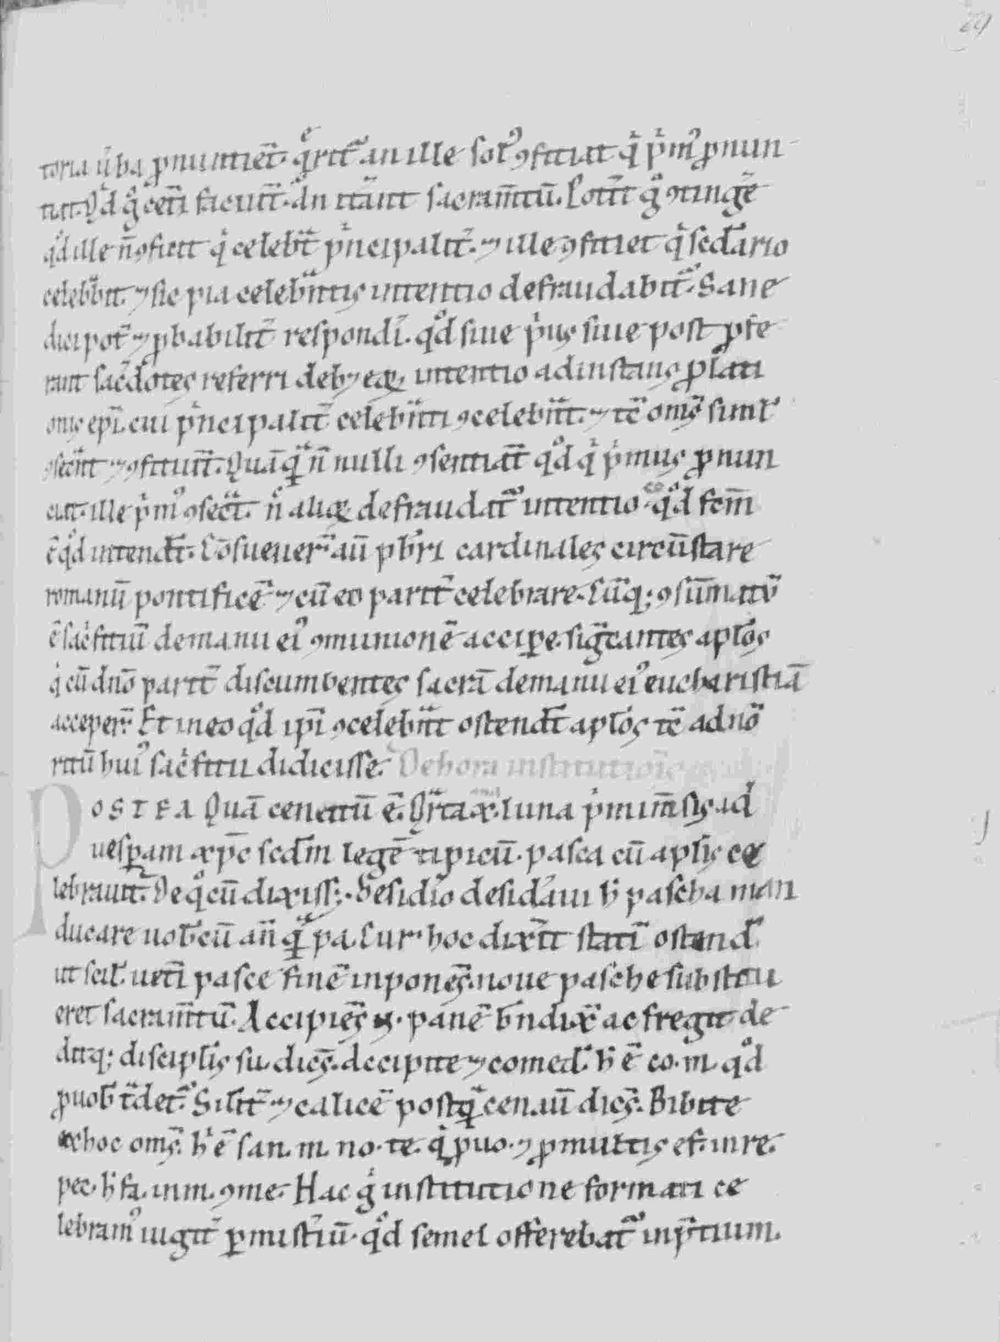 toria ũba ꝓnuntiet̄. q̄rit᷑ an ille sol᷒ ꝯfitiat q̇ ṗm᷒ ꝓnun
tiat. Qd̓ g̊ cet̄i faciūt. An it̄ant sacram̄tū. Pot̄it g̊ ꝯtinge᷑
qd̓ ille n̄ ꝯficit q̇ celebrat p̓ncipalit̄. ⁊ ille ꝯfitiet q̇ secd̄ario
celebrat. ⁊ sic pia celebrantis intentio defraudabit᷑. Sane
dici pot̄ ⁊ ꝓbabilit̄ respondi. qd̓ siue p̓us siue post ꝓfe
rant sacdotes referri debꝫ eoꝝ intentio ad instans ꝓlati
onis ep̄i. cui p̓ncipalit̄ celebranti ꝯcelebrant. ⁊ tc̄ om̄s simul
ꝯsecrant ⁊ ꝯfitiunt. Quāqͣ n̄ nulli ꝯsentiant qd̓ q̇ p̓mus ꝓnun
ciat. ille p̓m᷒ ꝯsecrat. n̄ alioꝝ defraudat᷑ intentio. qd̓ fcm̄
ē qd̓ intendt̄. Cōsueuer̄ aū pb̄ri cardinales circūstare
romanū pontificē ⁊ cū eo parit̄ celebrare. Cūqꝫ ꝯsūmatū
ē sac̓fitiū de manu ei᷒ ꝯmunionē accipe. sigͣficantes apl̄os
q̇ cū dn̄o parit̄ discumbentes sacrā de manu ei᷒ eucharistiā
acceper̄. Et in eo qd̓ ip̄i ꝯcelebrant ostendt̄ apl̄os tc̄ a dn̄o
ritū hui᷒ sac̓fitii didicisse. De hora institutiōis
Postea Quā cenatū ē. Qrͣta xͣ. luna p̓mi m̄sis. ad
uespam xp̄c scdm̄ legē tipicū. pasca cū apl̄is ce
lebrauit. De qͦ cū dixissꝫ. Desidio desidaui h̄ pascha man
ducare uob̄cū an̄qͣ pa. Cur hoc dix̄it stati᷑ ostend᷑.
ut scil᷑ uet̄i pasce finē inponēs. noue pasche substitu
eret sacram̄tū. Accipiēs n̄. panē bn̄dixͭ ac fregit de
ditqꝫ discipl̄is su. dicēs. Accipite ⁊ comed. h̄ ē co. m. qd̓
ꝓ uob̄ tͣdet᷑. Silit̄ ⁊ calicē postqͣ cen. aū dicēs. Bibite
ex hoc om̄s. h̓ ē san. m. no. te. q̇ ꝓ uo. ⁊ ꝓ multis ef. in re.
pec. h̄ fa. in m. ꝯme. Hac g̊ institutione formati ce
lebram᷒ iugit̄ ꝑ mist̄iū. qd̓ semel offerebat᷑ in p̄tium.